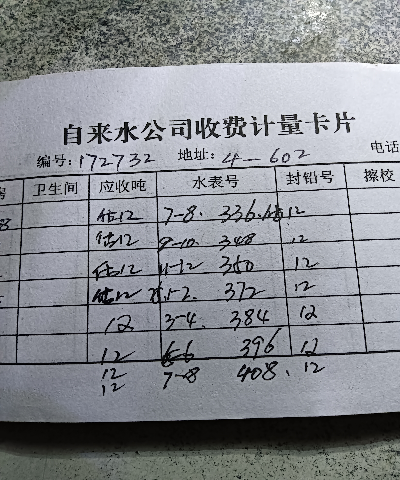 自来水公司收费计量卡片
编号:172732 地址:4-602 电话
房 卫生间 应收吨 水表号 封铅号 擦校
估12 7-8. 336. 12
估12 9-10. 348 12
估12 11-12 360 12
估12 1-2. 372 12
12 3-4. 384 12
12 5-6 396 12
12 7-8 408. 12
12